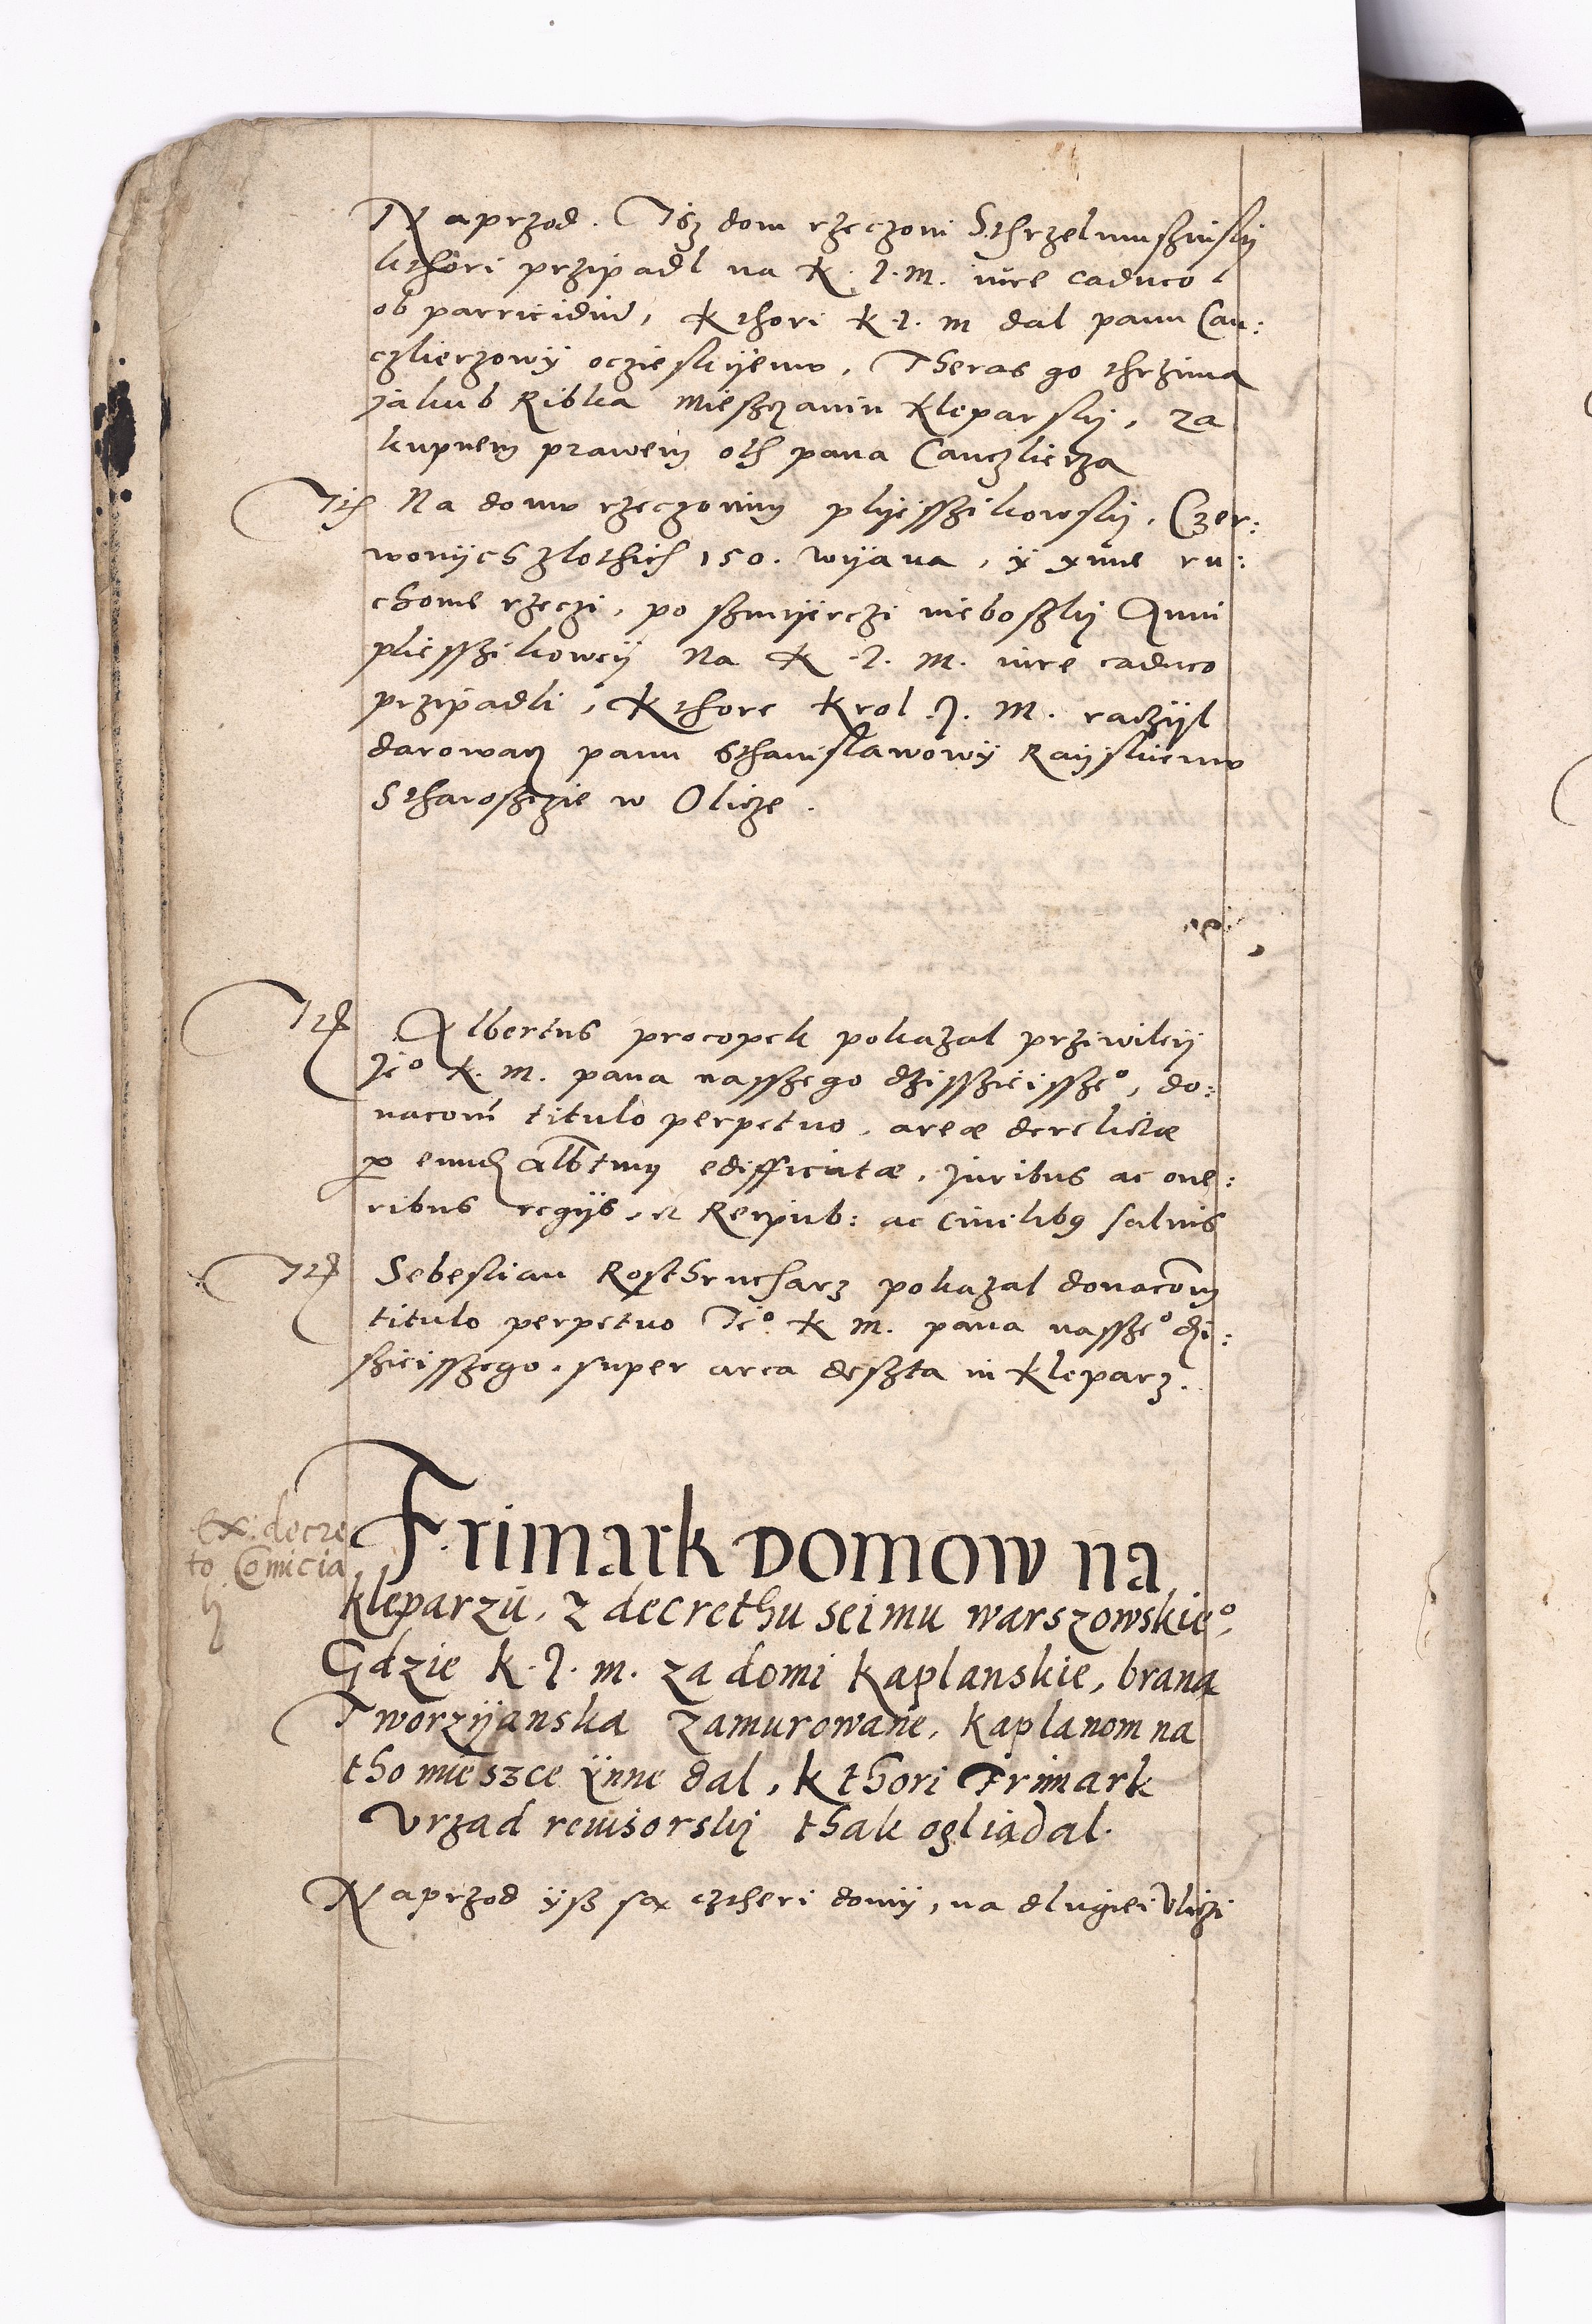 Naprzod. Isz dom rzeczoni Sthrzelmuszinsky
kthori przipadl na K. J. M. iure caduco
ob parricidiu, Kthori K. J. m dal panu Can:
czlierzowÿ oczieskÿemu, Theras go thrzima
jakub Ribka Mieszczanin Kleparsky, za
kupnem prawem oth pana Canczlierza
Ith Na domu rzeczonim plÿesszikowsky, Czer:
wonÿch zlothich 150. wÿana, ÿ ynne ru:
chome rzeczi, po szmÿerczi nieboszky Anni
pliesszikoweÿ Na K. J. M. iure caduco
przipadli, Kthore Krol J. M. raczÿl
darowacz panu Sthanislawowÿ Raÿskiemu
Stharosczie w Olicze.
Ith Albertus procopek pokazal przivilieÿ
Je° K. M. pana nasszego dzissieissze°, do:
nacom titulo perpetuo, areæ derelictæ
p eund Albtum edifficatæ, Juribus ac one:
ribus regÿs, et Reipub: ac Ciuilibq saluis
Ith Sebestian Rostrucharz pokazal donacom
titulo perpetuo Je° K M. pana nassze° dzi:
szieisszego, super area desszta in Kleparz.
ex: decre
to Comicia
li
Frimark DOMOW na
kleparzu, z decrethu seimu warszowskie°,
Gdzie K. J. m. za domi kaplanskie, brana
Tworzÿanska zamurowane, kaplanom na
tho mieszce ÿnne dal, kthori Frimark
Vrzad rewisorsky thak ogliadal.
Naprzod ÿsz są cztheri domÿ, na dlugiei Vliczi